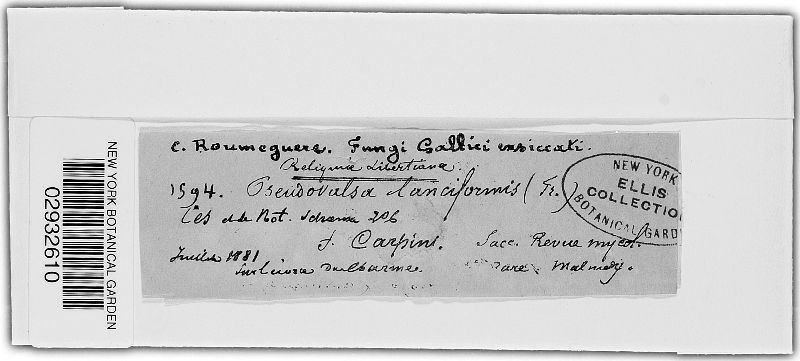 C. Roumeguere. Fungi Gallici exsiccati.
Reliquiæ Libertianæ.
1594. Pseudovalsa lanciformis (Fr.)
Ces et de Not. Schema 206
f. Carpini. Sacc. Revue mycol.
1881
Sur l'écorce du Charme. Malmedy.
NEW YORK
ELLIS
COLLECTION
BOTANICAL GARDEN
NEW YORK BOTANICAL GARDEN
02932610